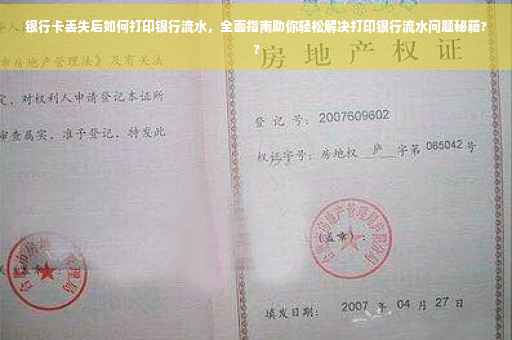 银行卡丢失后如何打印银行流水，全面指南助你轻松解决打印银行流水问题秘籍？
？
房地产权证
市房地产管理法》及有关
定，对权利人申请登记本证所
审查属实，准予登记，特发此
登记号：2007609602
权证字号：房地权 庐 字第 065042 号
（盖章）：
填发日期：2007 年 04 月 27 日